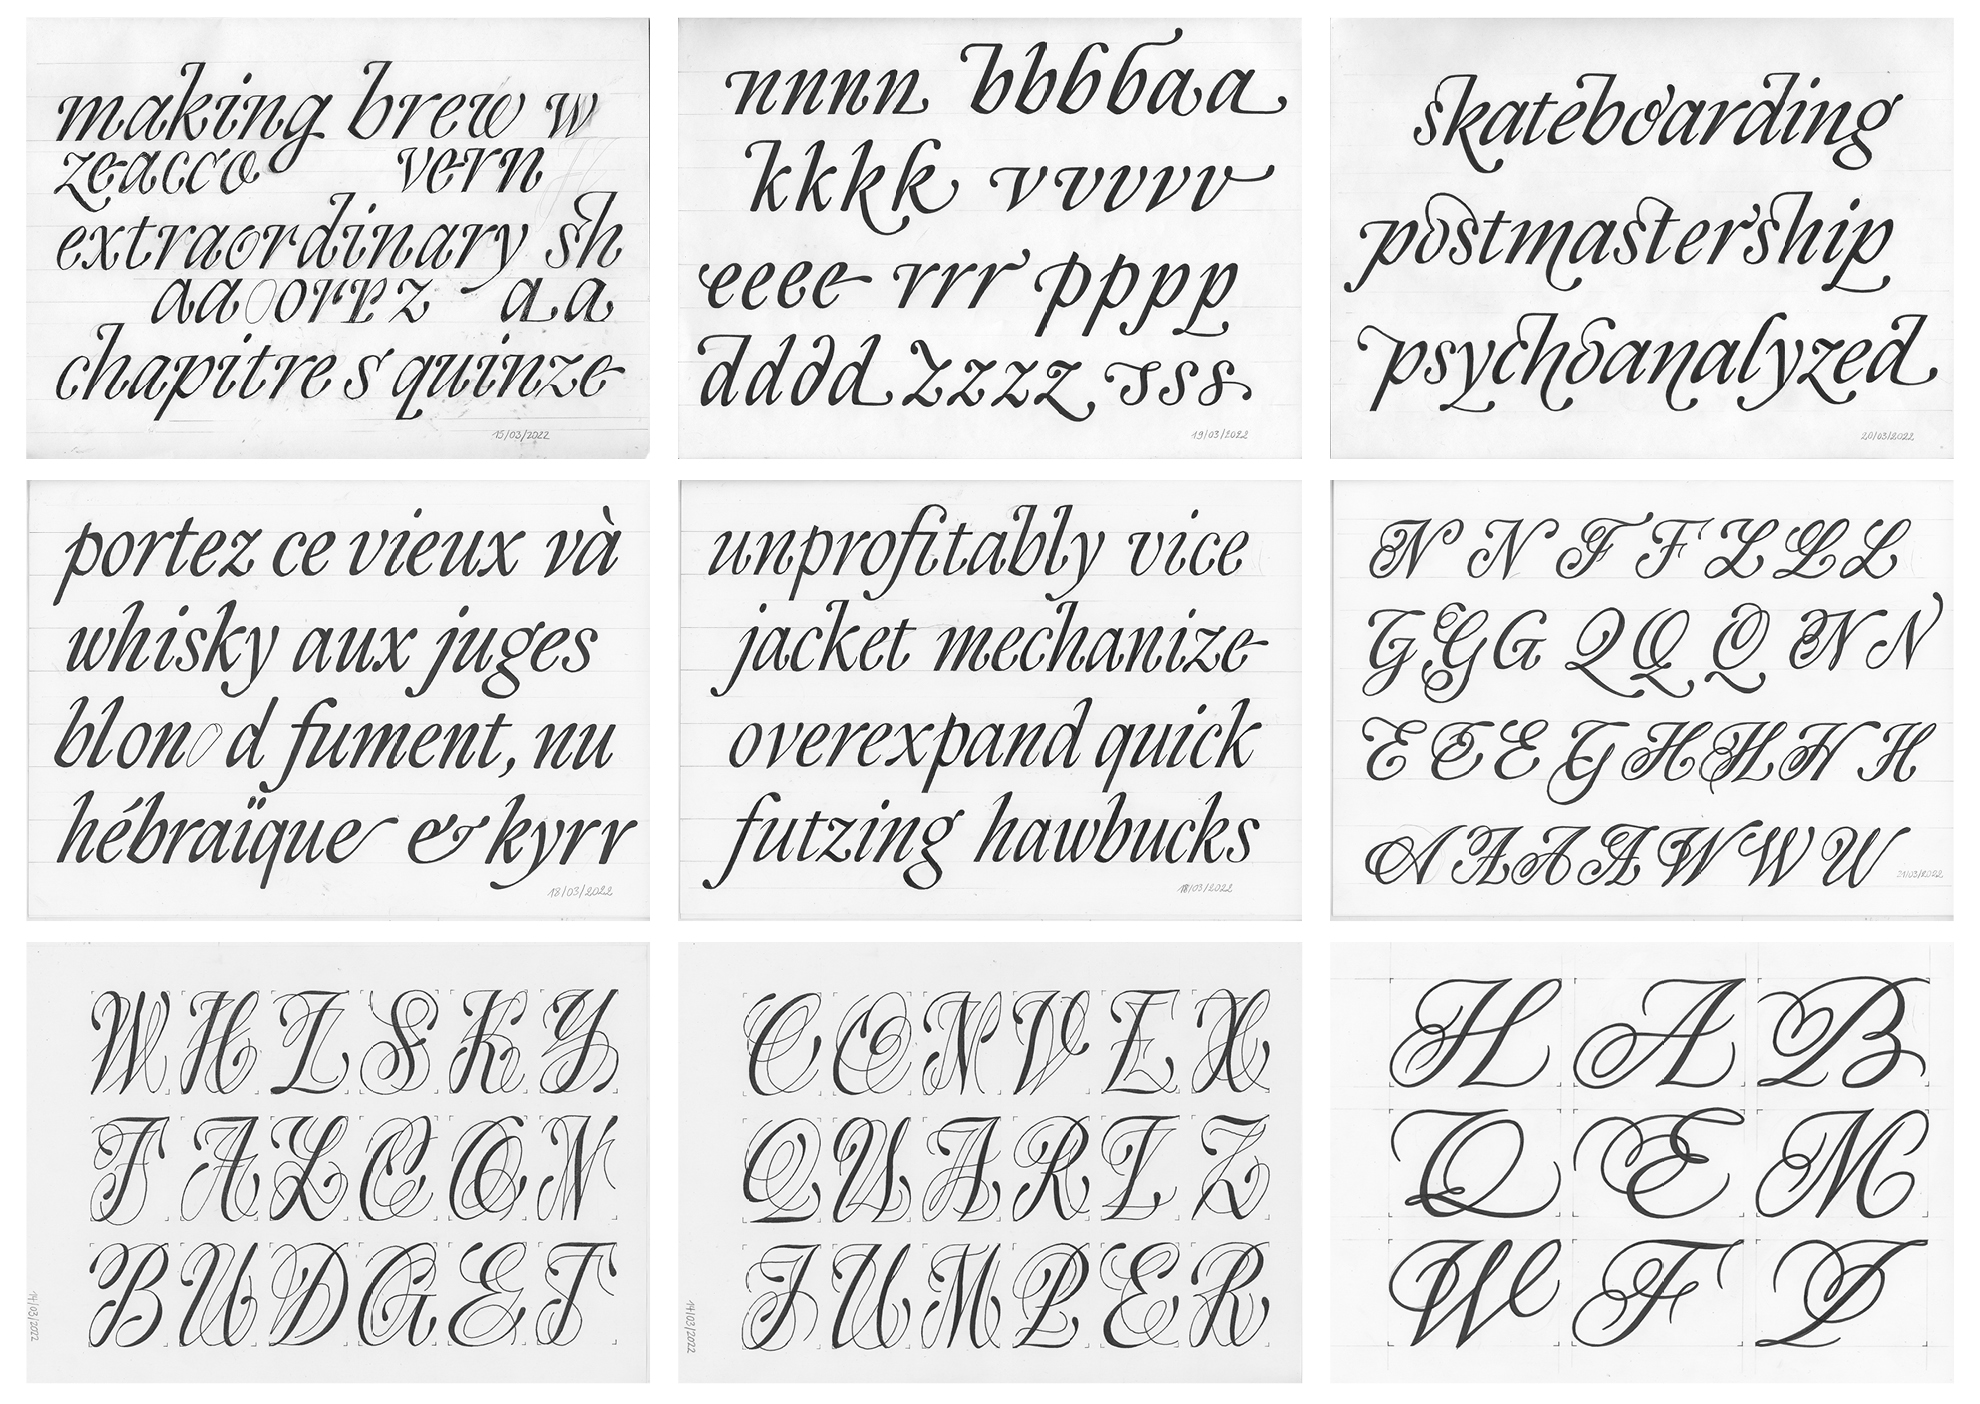 making brew w
zeacco vern
extraordinary sh
aaoorrz aa
chapitre s quinze
15/03/2022
nnnn bbbbaa
kkkk vvvvv
eeee rrr pppp
dddd zzzz sss
19/03/2022
skateboarding
postmastership
psychoanalyzed
20/03/2022
portez ce vieux và
whisky aux juges
blono d fument, nu
hébraïque & kyrr
18/03/2022
unprofitably vice
jacket mechanize
overexpand quick
futzing hawbucks
18/03/2022
N N F F L L L
G G G Q Q Q N N
E E E G H H H H
A A A A W W W
21/03/2022
WHISKY
FALCON
BUDGET
14/03/2022
CONVEX
QUARTZ
JUMPER
14/03/2022
H A B
Q E M
W F D